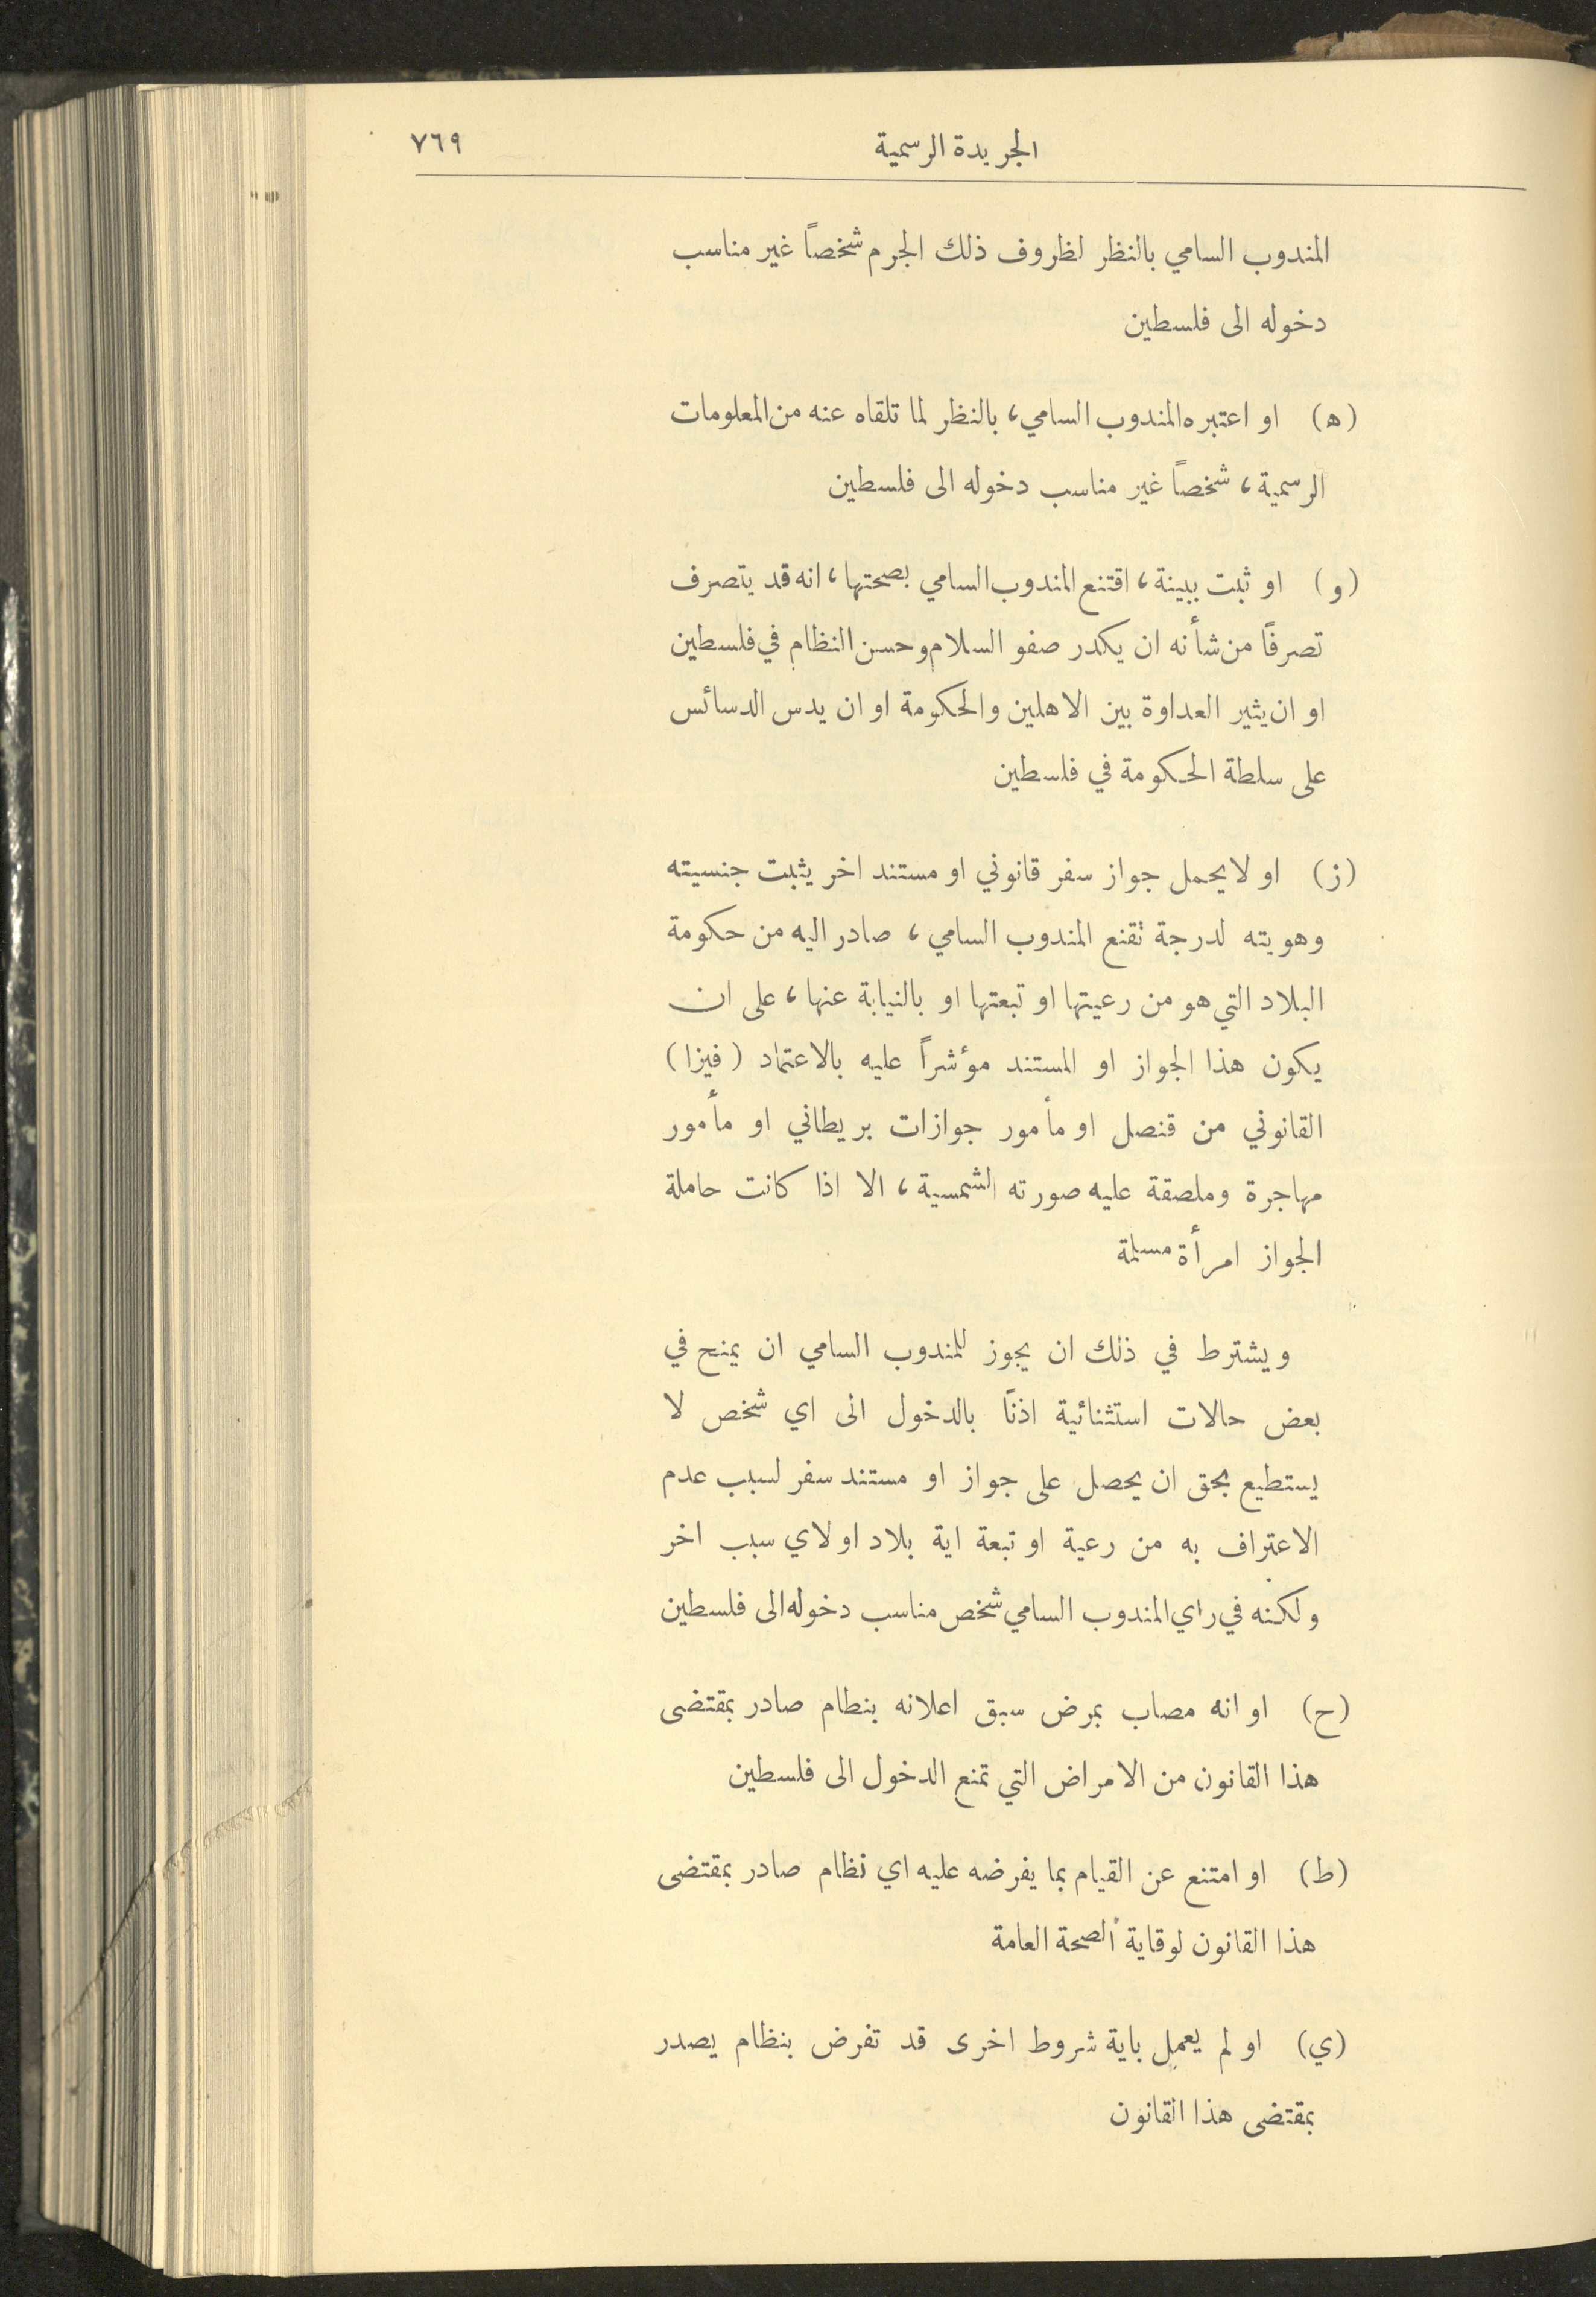 الجريدة الرسمية ٧٦٩
المندوب السامي بالنظر لظروف ذلك الجرم شخصاً غير مناسب
دخوله الى فلسطين
(ه) او اعتبره المندوب السامي، بالنظر لما تلقاه عنه من المعلومات
الرسمية، شخصاً غير مناسب دخوله الى فلسطين
(و) او ثبت ببينة، اقتنع المندوب السامي بصحتها، انه قد يتصرف
تصرفاً من شأنه ان يكدر صفو السلام وحسن النظام في فلسطين
او ان يثير العداوة بين الاهلين والحكومة او ان يدس الدسائس
على سلطة الحكومة في فلسطين
(ز) او لا يحمل جواز سفر قانوني او مستند اخر يثبت جنسيته
وهويته لدرجة تقنع المندوب السامي، صادر اليه من حكومة
البلاد التي هو من رعيتها او تبعتها او بالنيابة عنها، على ان
يكون هذا الجواز او المستند مؤشراً عليه بالاعتماد (فيزا)
القانوني من قنصل او مأمور جوازات بريطاني او مأمور
مهاجرة وملصقة عليه صورته الشمسية، الا اذا كانت حاملة
الجواز امرأة مسلمة
ويشترط في ذلك ان يجوز للمندوب السامي ان يمنح في
بعض حالات استثنائية اذناً بالدخول الى اي شخص لا
يستطيع بحق ان يحصل على جواز او مستند سفر لسبب عدم
الاعتراف به من رعية او تبعة اية بلاد او لاي سبب اخر
ولكنه في راي المندوب السامي شخص مناسب دخوله الى فلسطين
(ح) او انه مصاب بمرض سبق اعلانه بنظام صادر بمقتضى
هذا القانون من الامراض التي تمنع الدخول الى فلسطين
(ط) او امتنع عن القيام بما يفرضه عليه اي نظام صادر بمقتضى
هذا القانون لوقاية الصحة العامة
(ي) او لم يعمل باية شروط اخرى قد تفرض بنظام يصدر
بمقتضى هذا القانون